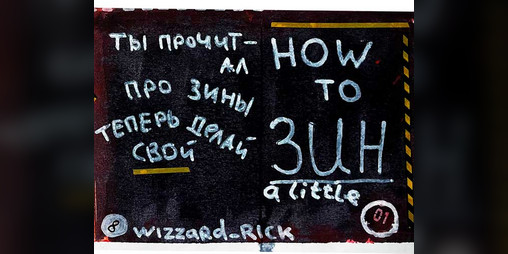 ТЫ ПРОЧИТ-
АЛ
ПРО ЗИНЫ
ТЕПЕРЬ ДЕЛАЙ
СВОЙ
8 wizzard_Rick
HOW
TO
ЗИН
a little
01